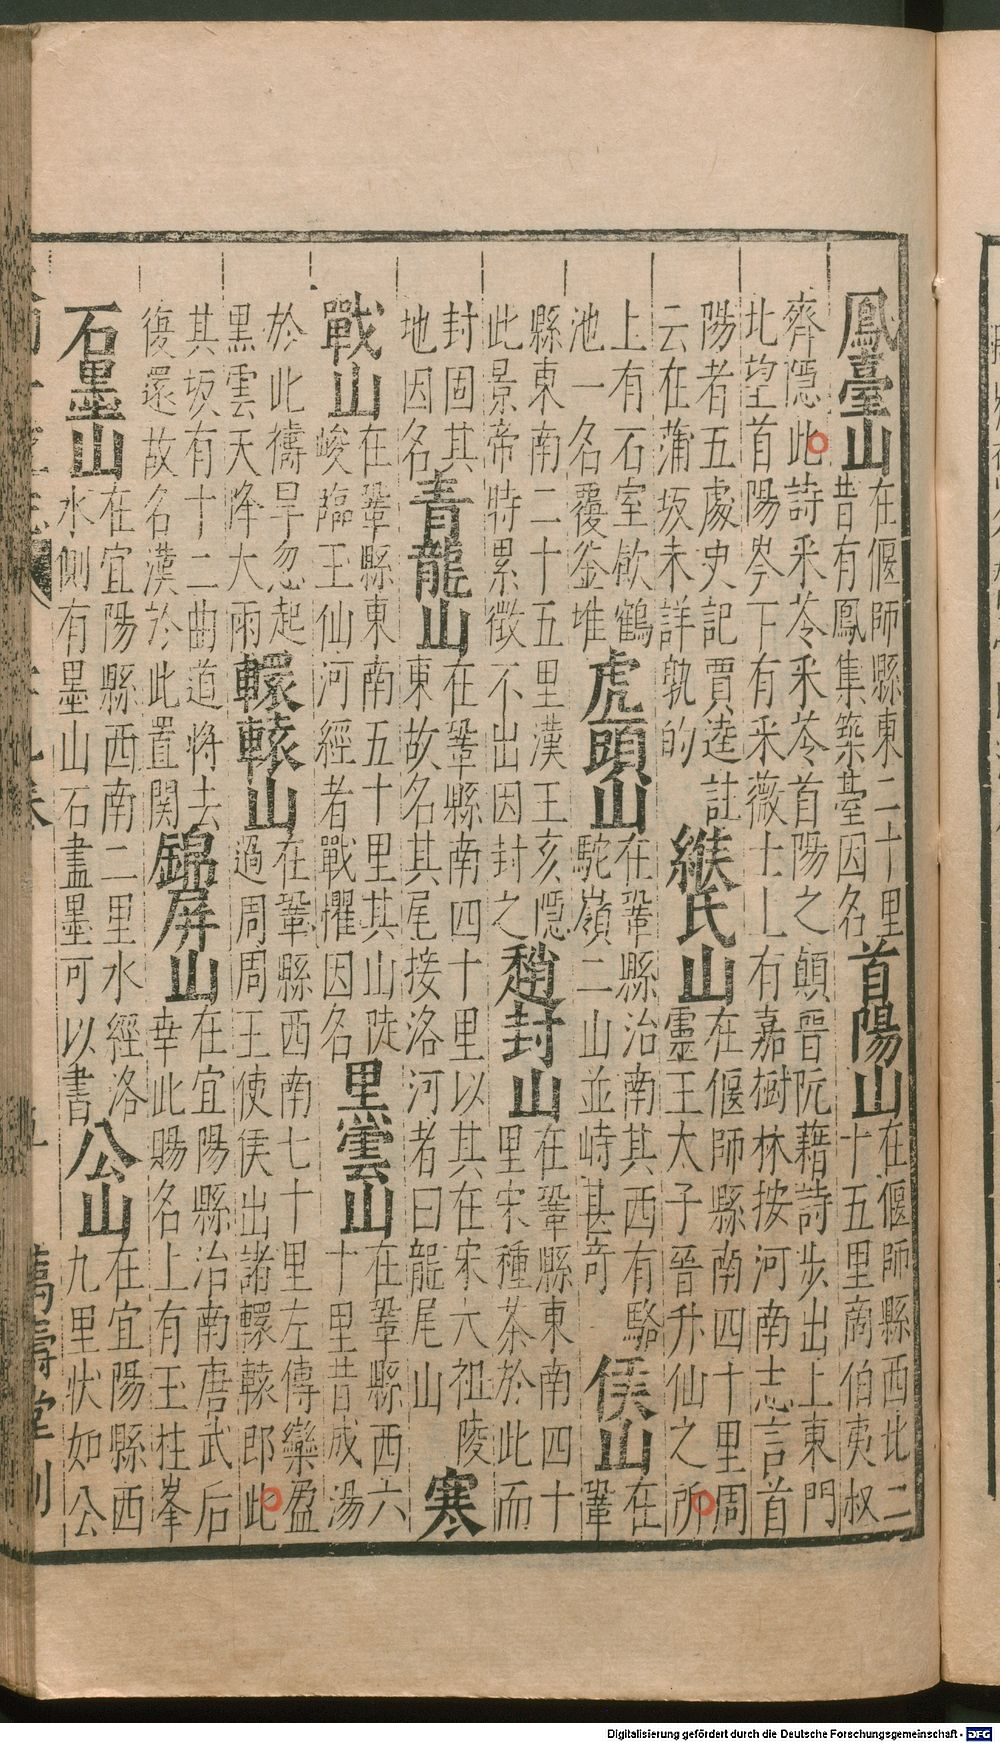 鳳臺山
在偃師縣東二十里
昔有鳳集築臺因名
首陽山
在偃師縣西北二
十五里商伯夷叔
齊隱此詩釆苓釆苓首陽之顛晉阮藉詩步出上東門
北望首陽岑下有采薇士上有嘉樹林按河南志言首
陽者五處史記賈逵註
云在蒲坂未詳孰的
緱氏山
在偃師縣南四十里周
靈王太子晉升仙之所
上有石室㱃鶴
池一名覆釜堆
虎頭山
在鞏縣治南其西有駱
駝嶺二山並峙甚奇
侯山
在
鞏
縣東南二十五里漢王亥隱
此景帝特累徵不出因封之
趙封山
在鞏縣東南四十
里宋種茶於此而
封固其
地因名
青龍山
在鞏縣南四十里以其在宋六祖陵
東故名其尾接洛河者曰龍尾山
寒
戰山
在鞏縣東南五十里其山陡
峻臨王仙河經者戰懼因名
黑雲山
在鞏縣西六
十里昔成湯
於此禱旱忽起
黑雲天降大雨
轘轅山
在鞏縣西南七十里左傳欒盈
過周周王使侯出諸轘轅郎此
其坂有十二曲道將去
復還故名漢於此置関
錦屏山
在宜陽縣治南唐武后
幸此賜名上有玉柱峯
石墨山
在宜陽縣西南二里水經洛
水側有墨山石盡墨可以書
公山
在宜陽縣西
九里狀如公
萬壽堂刋
Digitalisierung gefördert durch die Deutsche Forschungsgemeinschaft - DFG